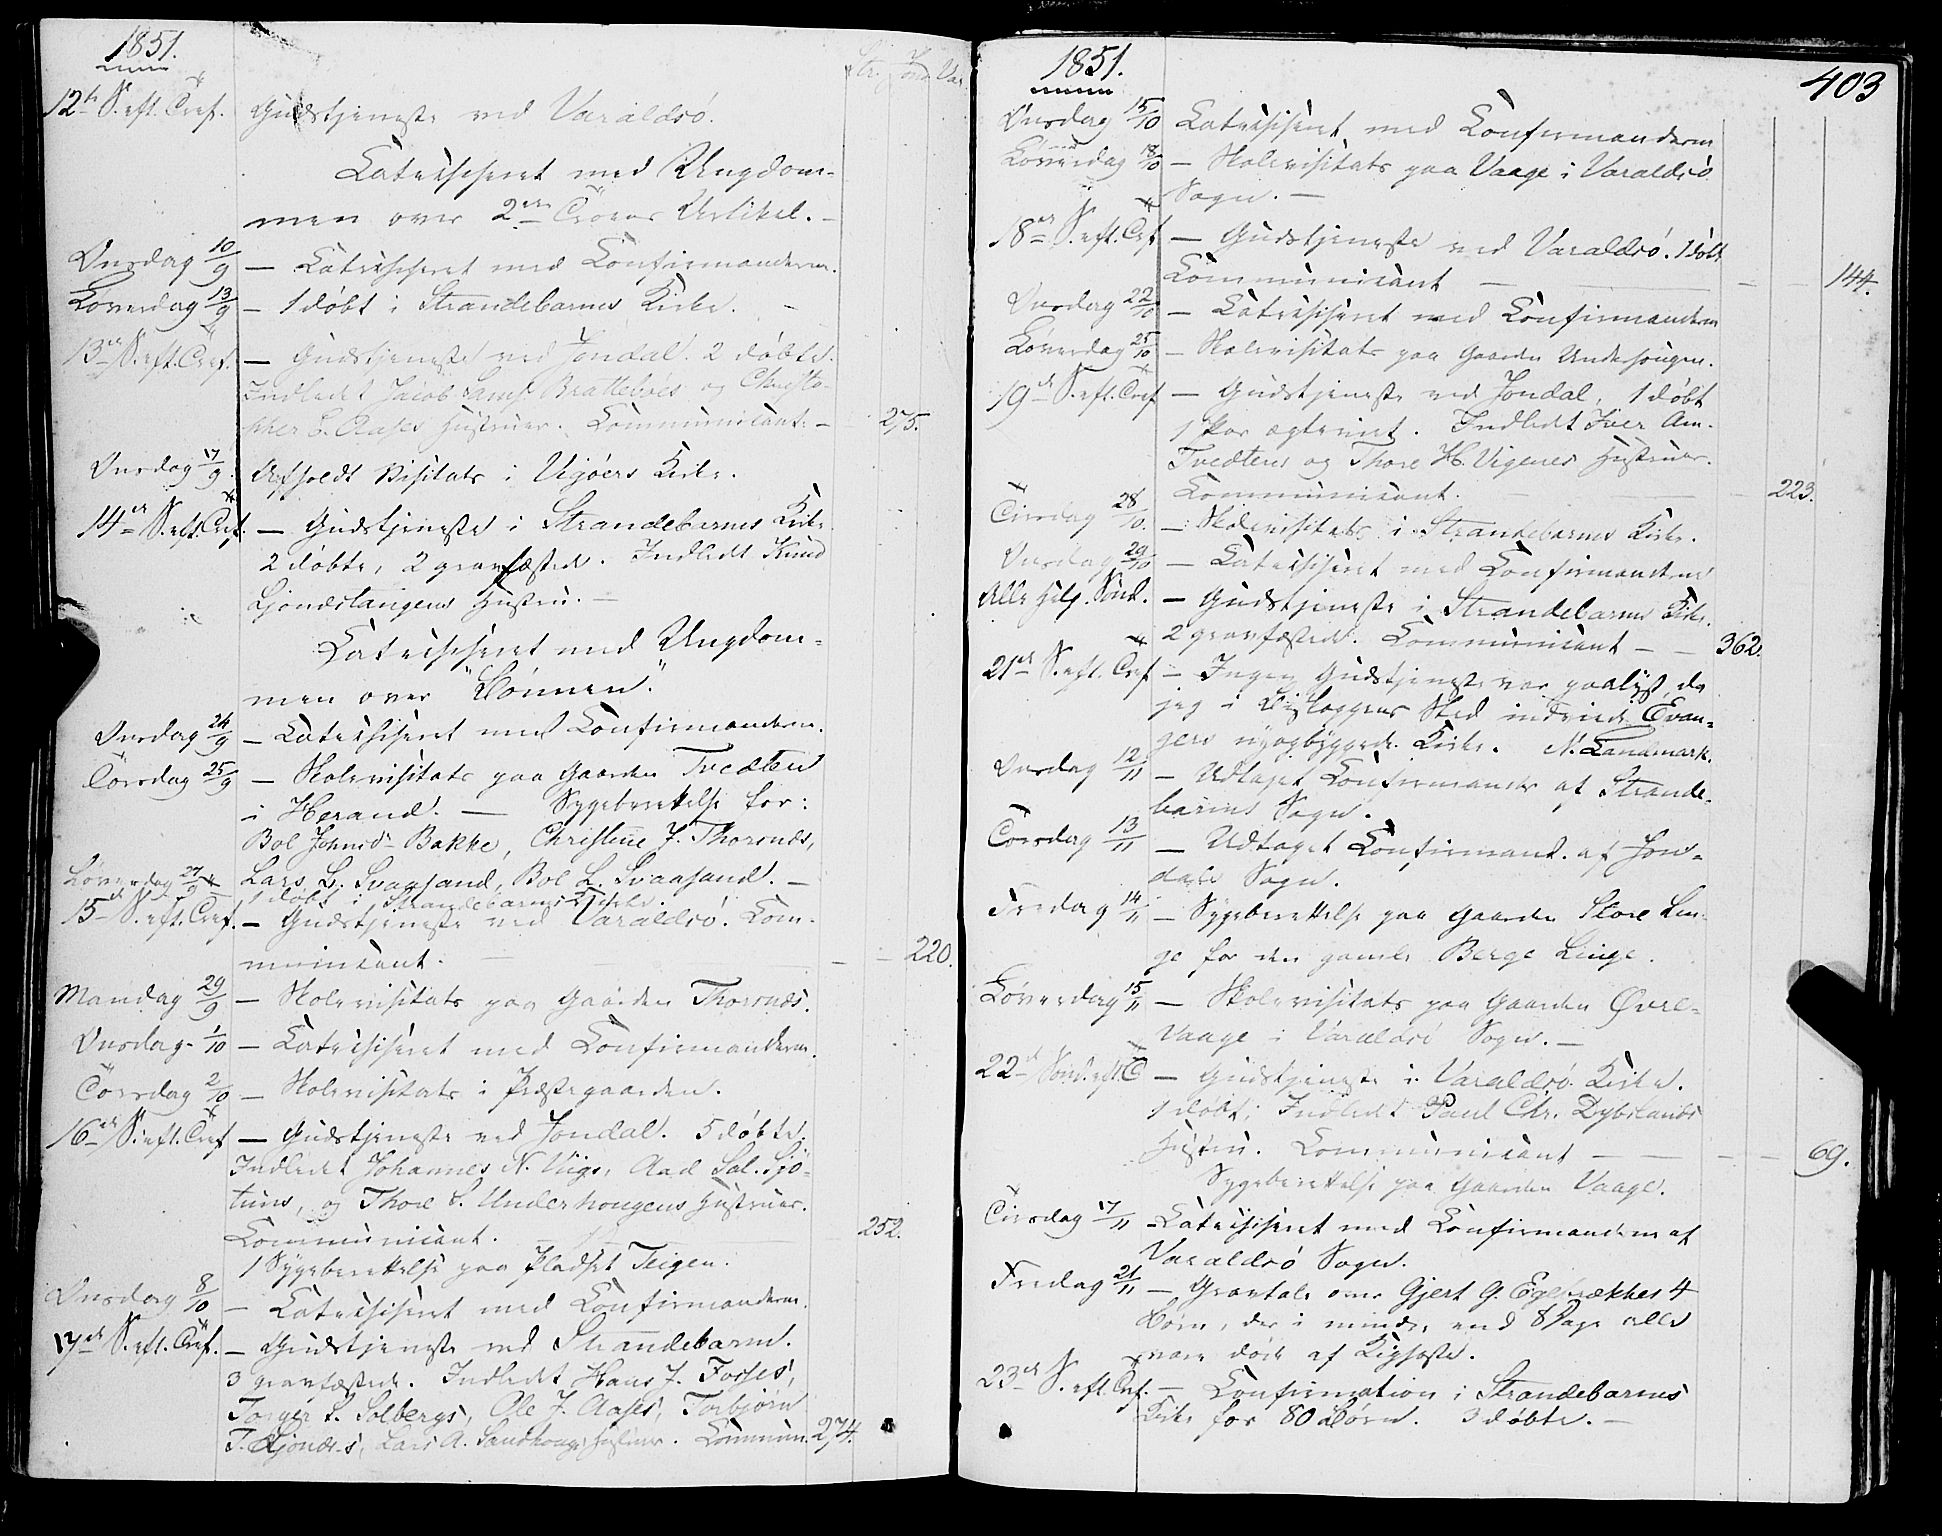 1851.
Str. Jond. Var.
12te S. eft. Tref. Gudstjeneste ved Varaldsö.
Catechiseret med Ungdom-
men over 2den Troens Artikel. -
Onsdag 10/9 - Catechiseret med Confirmanderne.
Löverdag 13/9 - 1 döbt i Strandebarms Kirke. -
13de S. eft. Tref. - Gudstjeneste ved Jondal. 2 döbte.
Indledet Jacob Brattebös og Christo-
pher L. Aases Hustruer. Communicant. - 275.
Onsdag 17/9. Afholdt Visitats i Vigöers Kirke.
14de S. eft. Tref. - Gudstjeneste i Strandebarms Kirke
2 döbte, 2 gravfæstede. Indledt Knud
Ljondstangens Hustru. -
Catechiseret med Ungdom-
men over "Bönnen".
Onsdag 24/9 - Catechiseret med Confirmanderne.
Torsdag 25/9 - Skolevisitats paa Gaarden Tvedten
i Herand. - Sygeberettelse for:
Bol Johnsd. Bakke, Christine J. Thorsnæs,
Löverdag 27/9 Lars L. Svaasand, Bol L. Svaasand. -
1 döbt i Strandebarms Kirke.
15de S. eft. Tref. - Gudstjeneste ved Varaldsö. Com-
municant. - 220.
Mandag 29/9 - Skolevisitats paa Gaarden Thorsnæs.
Onsdag 1/10 - Catechiseret med Confirmanderne.
Torsdag 2/10 - Skolevisitats i Præstegaarden.
16de S. eft. Tref - Gudstjeneste ved Jondal. 5 döbte.
Indledet Johannes N. Viigs, Aad Sal. Sjö-
tuns, og Thore S. Underhougens Hustruer.
Communicant. - 252.
1 Sygeberettelse paa Pladset Teigen.
Onsdag 8/10 - Catechiseret med Confirmanderne.
17de S. eft. Tref. - Gudstjeneste ved Strandebarm.
3 gravfæstede. Indledt Hans J. Fosses,
Torger L. Solbergs, Ole J. Aases, Torbjörn
T. Ljones's, Lars A. Sandhougs Hustruer. Commun. 274.
403
1851.
Onsdag 15/10 Catechiseret med Confirmanderne
Löverdag 18/10 - Skolevisitats paa Vaage i Varaldsö
Sogn. -
18de S. eft. Tref - Gudstjeneste ved Varaldsö. 1 döbt
Communicant - 144.
Onsdag 22/10 - Catechiseret med Confirmanderne
Löverdag 25/10 - Skolevisitats paa Gaarden Underhougen.
19de S. eft. Tref - Gudstjeneste ved Jondal, 1 döbt
1 Par ægteviet. Indledt Iver Am.
Tvedtens og Thore H. Vigenes Hustruer.
Communicant. - 223.
Tirsdag 28/10. - Skolevisitats i Strandebarms Kirke.
Onsdag 29/10 - Catechiseret med Confirmanderne
Alle Helg. Sönd. - Gudstjeneste i Strandebarms Kirke.
2 gravfæstede. Communicant - - 362.
21de S. eft. Tref - Ingen Gudstjeneste var paalyst, da
jeg i Biskoppens Sted indviede Evan-
gers nyopbyggede Kirke. N. Landmark.
Onsdag 12/11 - Udtaget Confirmander af Strande-
barms Sogn.
Torsdag 13/11 - Udtaget Confirmand. af Jon-
dals Sogn.
Fredag 14/11 - Sygeberettelse paa Gaarden Store Lin-
ge for den gamle Berge Linge.
Löverdag 15/11 - Skolevisitats paa Gaarden Övre-
Vaage i Varaldsö Sogn. -
22de Sönd. eft. T - Gudstjeneste i Varaldsö Kirke.
1 döbt. Indledt Paul Chr. Dybslands
Hustru. Communicant - - - 69.
Sygeberettelse paa Gaarden Vaage.
Tirsdag 17/11 - Catechiseret med Confirmanderne af
Varaldsö Sogn.
Fredag 21/11 - Gravtale over Gjert G. Egenækkes 4
Börn, der i mindre end 8 Dage alle
vare döde af Kighoste.
23de S. eft. Tref. - Confirmation i Strandebarms
Kirke for 80 Börn. 3 döbte. -